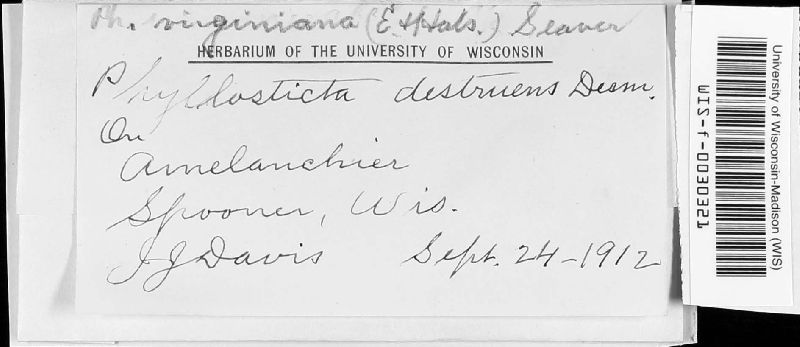 Ph. virginiana (E. & Hals.) Seaver
HERBARIUM OF THE UNIVERSITY OF WISCONSIN
Phyllosticta destruens Desm.
On
Amelanchier
Spooner, Wis.
J J Davis Sept. 24-1912
University of Wisconsin-Madison (WIS)
WIS-f-0030321